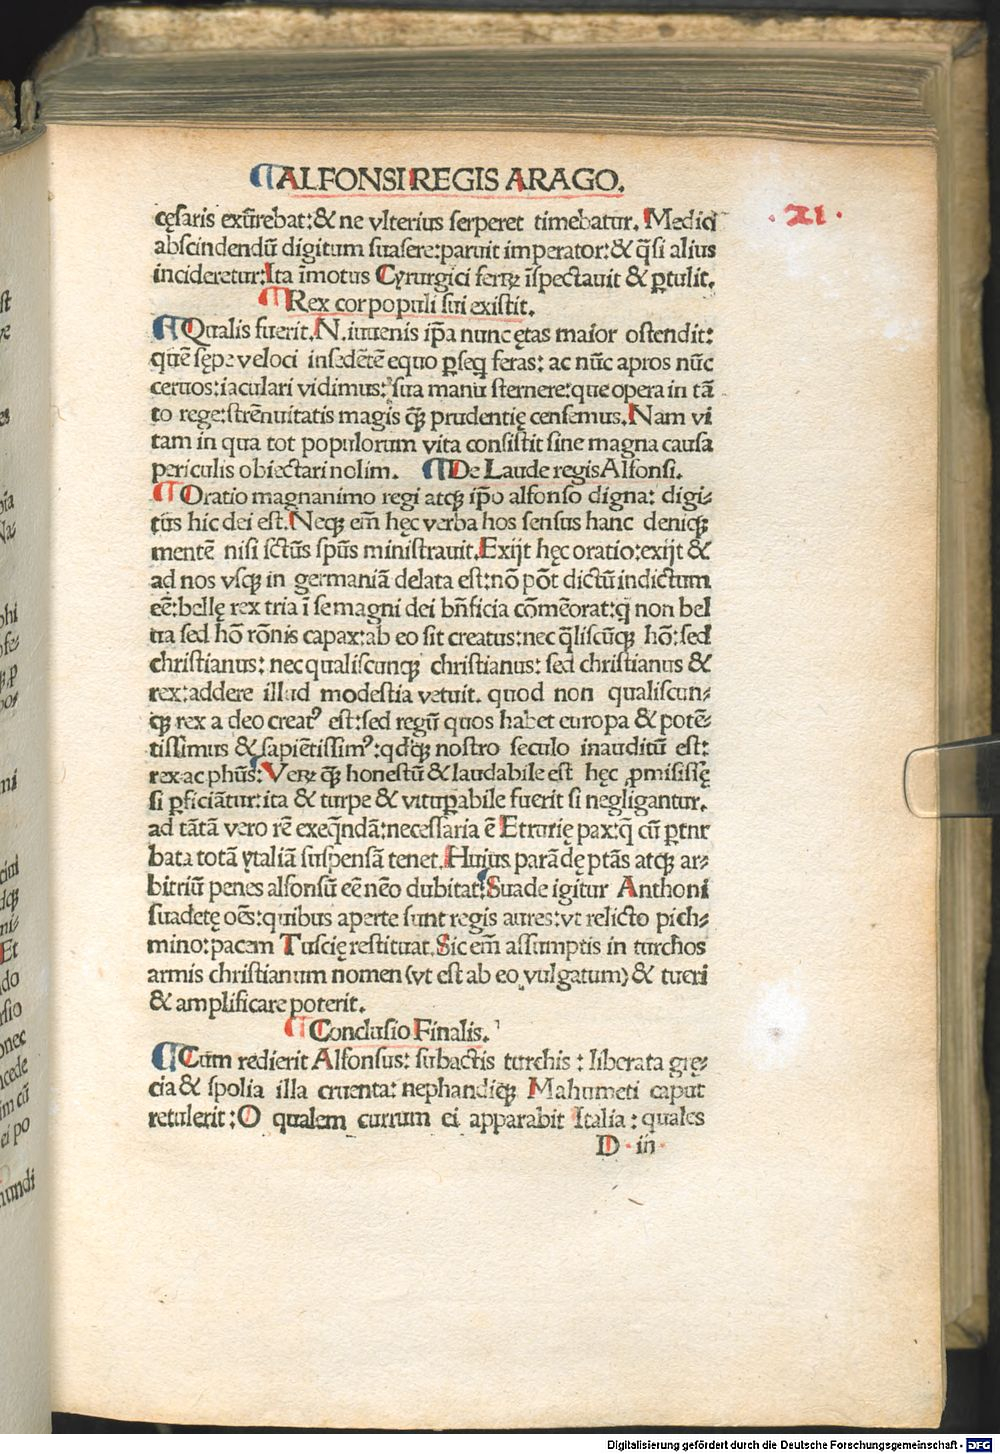 ¶ALFONSI REGIS ARAGO.
.21.
cęsaris exūrebat:& ne vlterius serperet timebatur. Medici
abscindendū digitum suasere:paruit imperator:& q̄si alius
incideretur:Ita īmotus Cyrurgici ferꝝ īspectauit & ꝑtulit.
¶Rex cor populi sui existit.
¶Qualis fuerit.N.iuuenis ip̄a nunc ętas maior ostendit:
quē sępe veloci insedētē equo ꝑseq feras: ac nūc apros nūc
ceruos:iaculari vidimus:sua manu sternere:que opera in tā
to rege:strēnuitatis magis q̄ꝫ prudentię censemus.Nam vi
tam in qua tot populorum vita consistit sine magna causa
periculis obiectari nolim. ¶De Laude regis Alfonsi.
¶Oratio magnanimo regi atqꝫ ip̄o alfonso digna: digi-
tus hic dei est.Neqꝫ em̄ hęc verba hos sensus hanc deniqꝫ
mentē nisi sctūs spūs ministrauit.Exijt hęc oratio:exijt &
ad nos vsqꝫ in germaniā delata est:nō pōt dictū indictum
eē:bellę rex tria ī se magni dei bn̄ficia cōmēorat:q̄ non bel
ua sed hō rōnis capax:ab eo sit creatus:nec q̄liscūqꝫ hō:sed
christianus: nec qualiscunqꝫ christianus: sed christianus &
rex:addere illud modestia vetuit. quod non qualiscun-
qꝫ rex a deo creatꝰ est:sed regū quos habet europa & potē-
tissimus & sapiētissimꝰ:qd̄qꝫ nostro seculo inauditū est:
rex ac phūs:Veꝝ q̄ꝫ honestū & laudabile est hęc ꝓmisissę
si ꝑficiātur:ita & turpe & vituꝑabile fuerit si negligantur.
ad tātā vero rē exeq̄ndā:necessaria ē Etrurię pax:q̄ cū ꝑtur
bata totā ytaliā suspensā tenet.Huius parādę ptās atqꝫ ar-
bitriū penes alfonsū eē nēo dubitat:Suade igitur Anthoni
suadetę oēs:quibus aperte sunt regis aures:vt relicto pich-
mino:pacem Tuscię restituat.Sic em̄ assumptis in turchos
armis christianum nomen (vt est ab eo vulgatum) & tueri
& amplificare poterit.
¶Conclusio Finalis.
¶Cum redierit Alfonsus: subactis turchis : liberata gręc-
cia & spolia illa cruenta: nephandiqꝫ Mahumeti caput
retulerit:O qualem currum ei apparabit Italia : quales
D iii
Digitalisierung gefördert durch die Deutsche Forschungsgemeinschaft - DFG